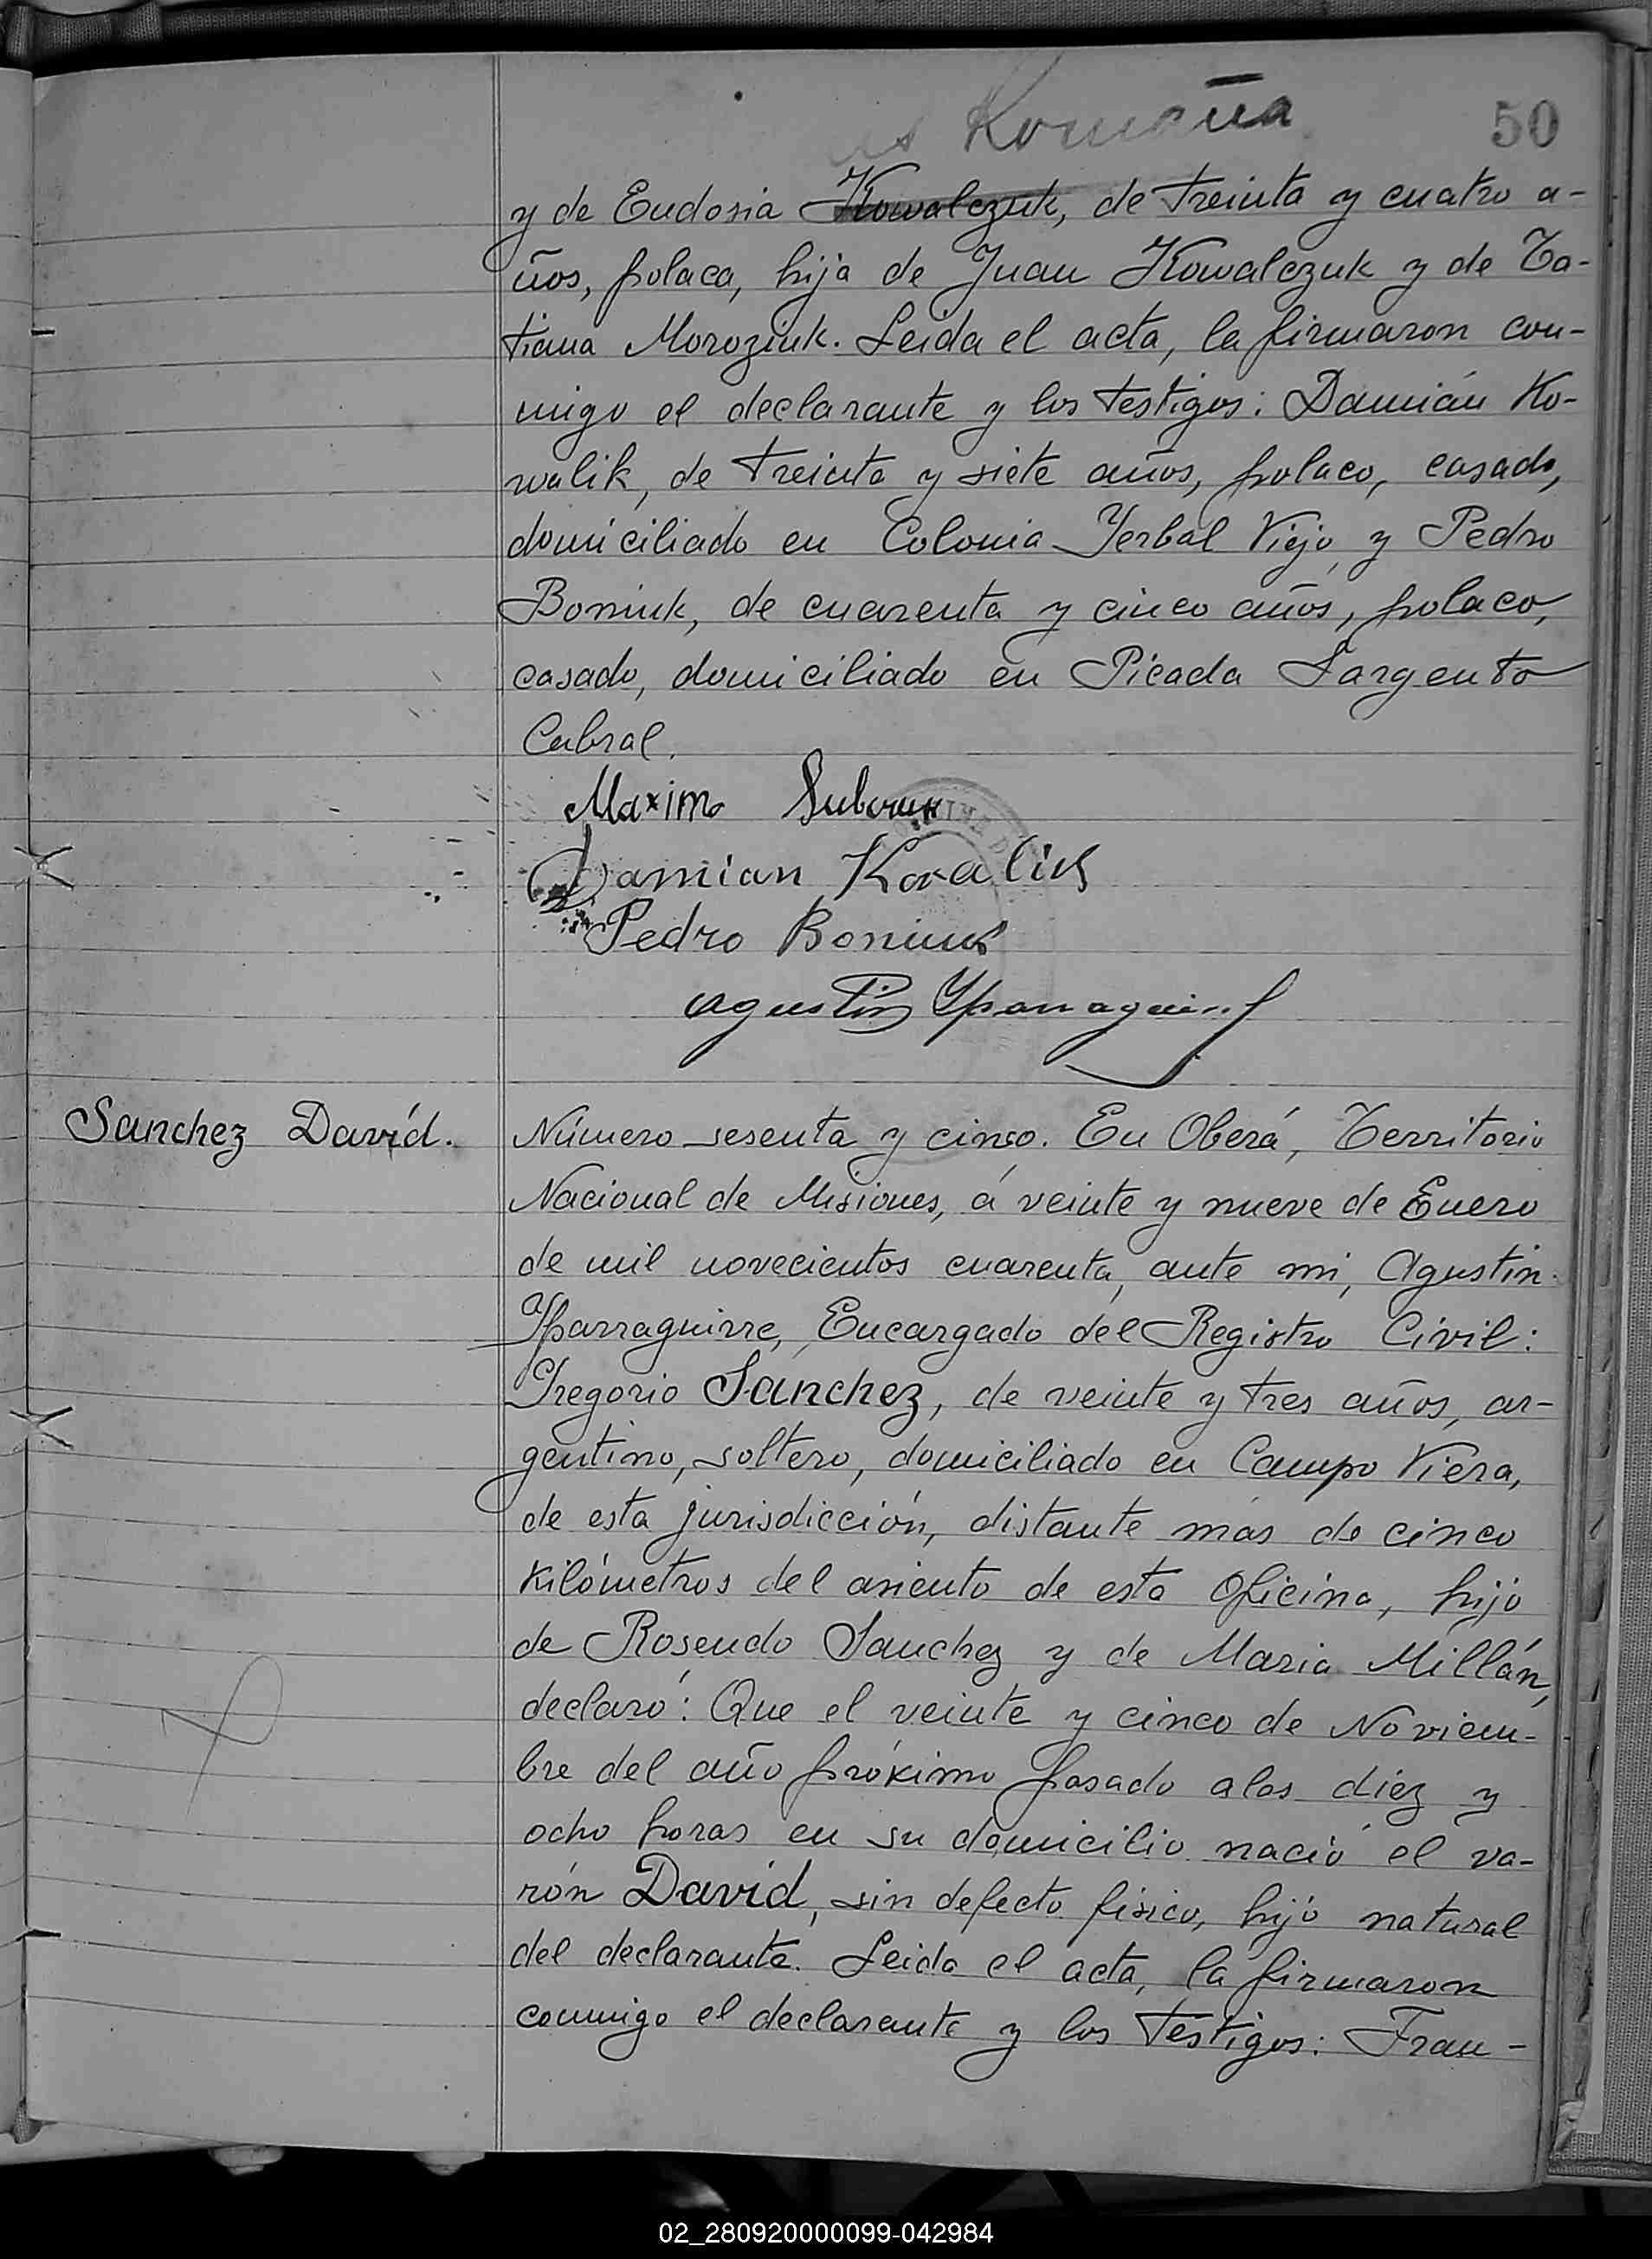 Romaña
50
y de Eudosia Kowalczuk, de treinta y cuatro a-
ños, polaca, hija de Juan Kowalczuk y de Ta-
tiana Moroziuk. Leida el acta, la firmaron con-
migo el declarante y los testigos: Damián Ko-
walik, de treinta y siete años, polaco, casado,
domiciliado en Colonia Yerbal Viejo, y Pedro
Boniuk, de cuarenta y cinco años, polaco,
casado, domiciliado en Picada Sargento
Cabral.
Maximo
Damian Kovalik
Pedro Boniuk
Agustin Yparraguirre
Sanchez David.
Número sesenta y cinco. En Oberá, Territorio
Nacional de Misiones, á veinte y nueve de Enero
de mil novecientos cuarenta, ante mi, Agustin
Yparraguirre, Encargado del Registro Civil:
Gregorio Sánchez, de veinte y tres años, ar-
gentino, soltero, domiciliado en Campo Viera,
de esta jurisdicción, distante más de cinco
kilómetros del asiento de esta Oficina, hijo
de Rosendo Sanchez y de Maria Millán,
declaró: Que el veinte y cinco de Noviem-
bre del año próximo pasado a las diez y
ocho horas en su domicilio nació el va-
rón David, sin defecto fisico, hijo natural
del declarante. Leida el acta, la firmaron
conmigo el declarante y los testigos: Fran-
02_280920000099-042984